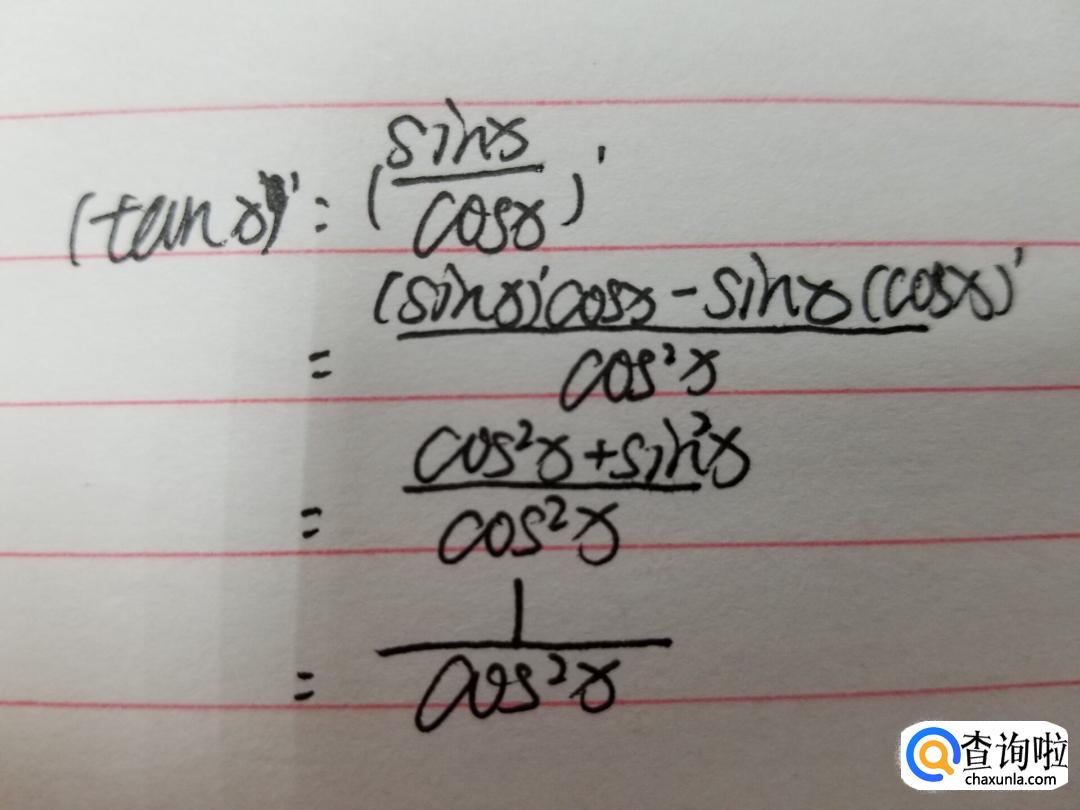 (tanx)' = (sinx/cosx)'
= (sinx)'cosx - sinx(cosx)'/cos²x
= cos²x + sin²x/cos²x
= 1/cos²x
查询啦
chaxunla.com